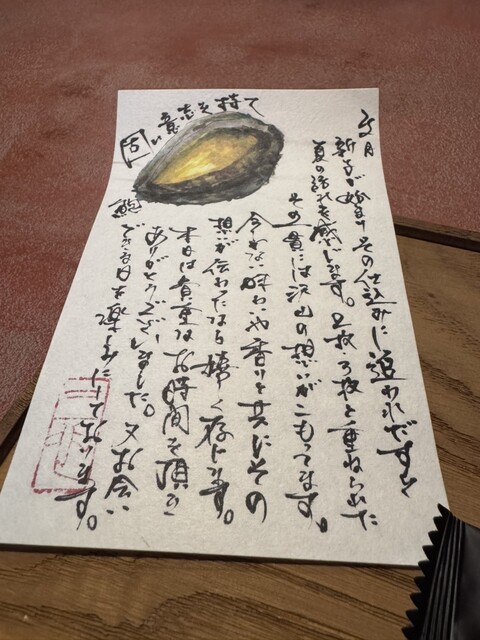 文月
新子が始まりその仕込みに追われだすと
夏の訪れを感じます。2枚・3枚と重ねられた
その一貫には沢山の想いがこもってます。
味わいや香りと共にその
想いが伝わったなら嬉く存じます。
本日は貴重なお時間を頂き
ありがとうございました。又お会い
できる日を楽しみにしております。
固い意志を持て
鮑